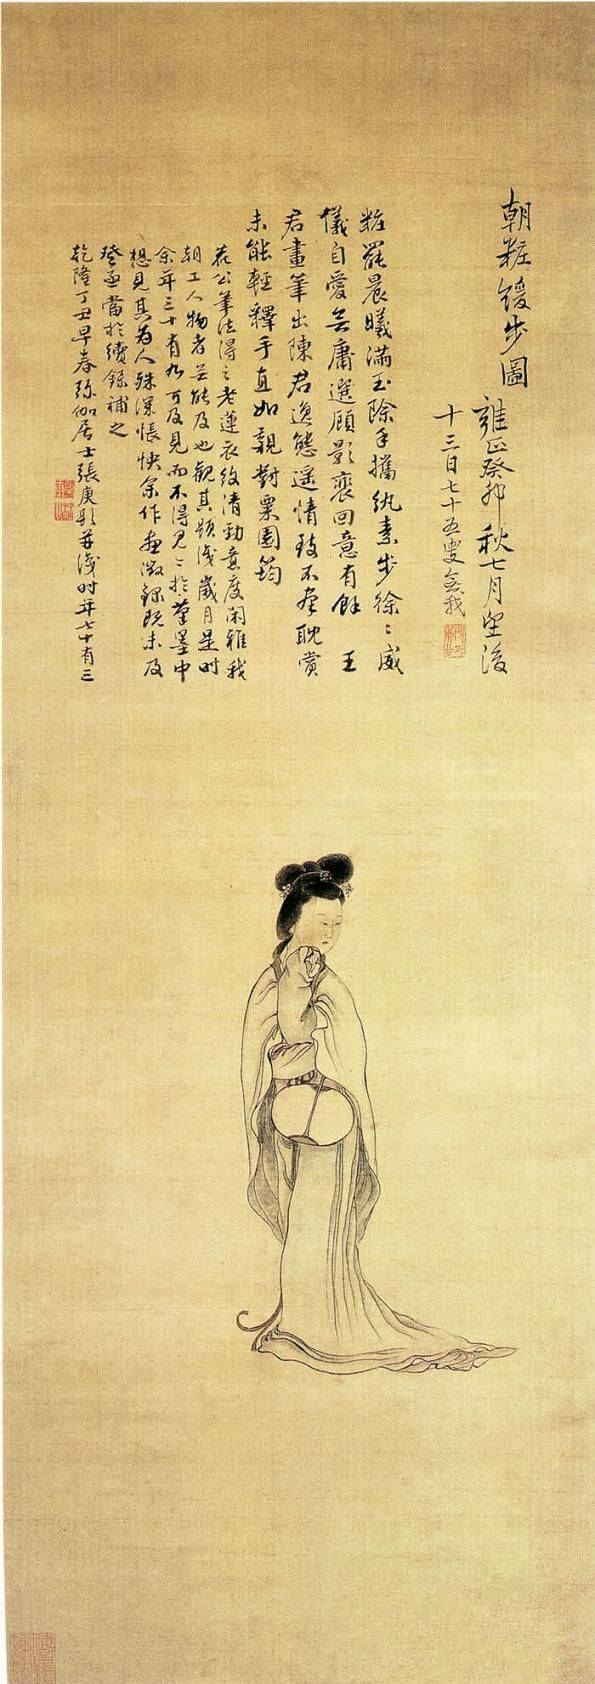 朝粧緩步圖
雍正癸卯秋七月望後
十三日七十五叟我
粧罷晨曦滿玉除手攜紈素步徐〻威
儀自愛無庸選顧影褱回意有餘 王
君畫筆出陳君逸態遥情致不耽賞
未能輕釋手直如親對粟園筠
公筆法得之老蓮衣紋清勁意度閑雅我
朝工人物者無能及也觀其題識歲月是時
余年三十有九可及見而不得見〻於筆墨中
想見其為人殊深悵怏余作畫徵錄既未及
登亟當於續錄補之
乾隆丁丑早春弥伽居士張庚題并識時年七十有三